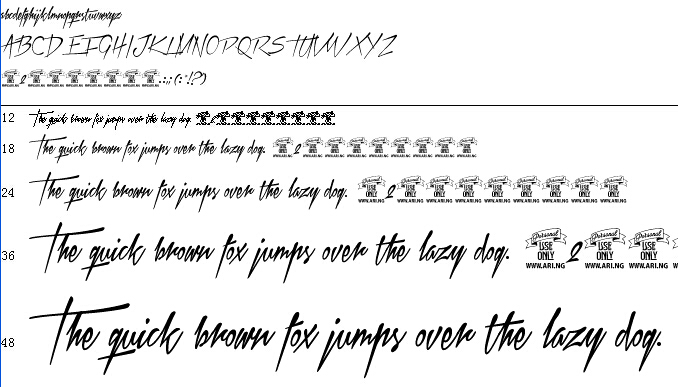 abcdefghijklmnopqrstuvwxyz
ABCDEFGHIJKLMNOPQRSTUVWXYZ
2 .:,;(:'!?)
12 The quick brown fox jumps over the lazy dog. 2
18 The quick brown fox jumps over the lazy dog. 2
24 The quick brown fox jumps over the lazy dog. Personal USE ONLY WWW.ARI.NG 2 USE ONLY WWW.ARI.NG USE ONLY WWW.ARI.NG USE ONLY WWW.ARI.NG USE ONLY WWW.ARI.NG USE ONLY WWW.ARI.NG USE ONLY WWW.ARI.NG USE ONLY WWW.ARI.NG USE ONLY WWW.ARI.NG
36 The quick brown fox jumps over the lazy dog. Personal USE ONLY WWW.ARI.NG 2 Personal USE ONLY WWW.ARI.NG Personal USE ONLY WWW.ARI.NG
48 The quick brown fox jumps over the lazy dog.